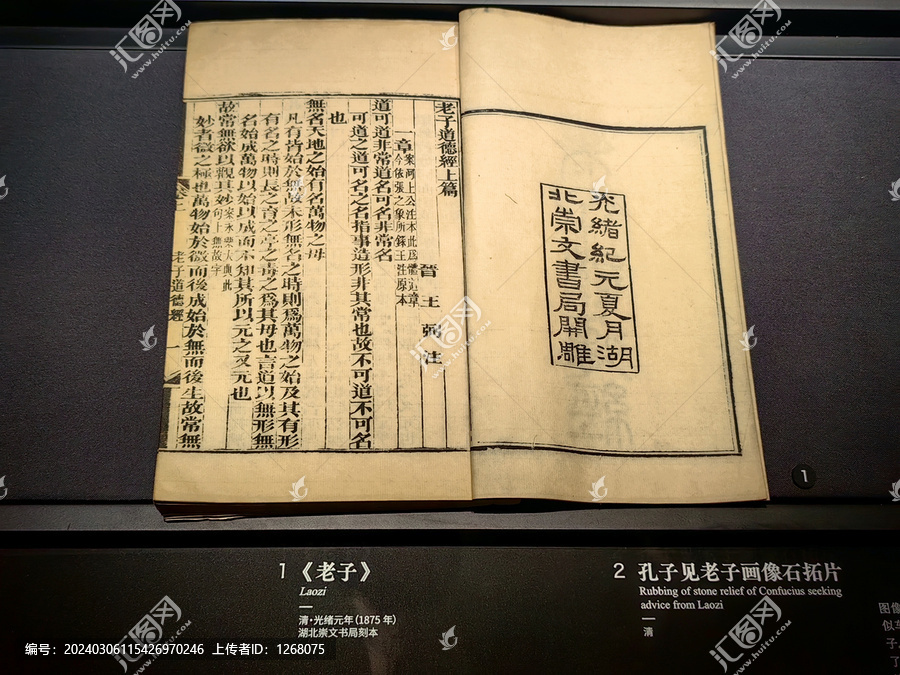 光緒紀元夏月湖
北崇文書局開雕
老子道德經上篇
晉 王 弼 注
一章 案河上公注本此爲體道章
今依張之象所錄王注原本
道可道非常道名可名非常名
可道之道可名之名指事造形非其常也故不可道不可名
也
無名天地之始有名萬物之母
凡有皆始於無故未形無名之時則爲萬物之始及其有形
有名之時則長之育之亭之毒之爲其母也言道以無形無
名始成萬物以始以成而不知其所以元之又元也
故常無欲以觀其妙 案永樂大典此
句上無故字
妙者微之極也萬物始於微而後成始於無而後生故常無
老子道德經 一
1
1 《老子》
Laozi
清·光绪元年(1875 年)
湖北崇文书局刻本
2 孔子见老子画像石拓片
Rubbing of stone relief of Confucius seeking
advice from Laozi
清
图像
汇图网
www.huitu.com
编号：20240306115426970246 上传者ID：1268075